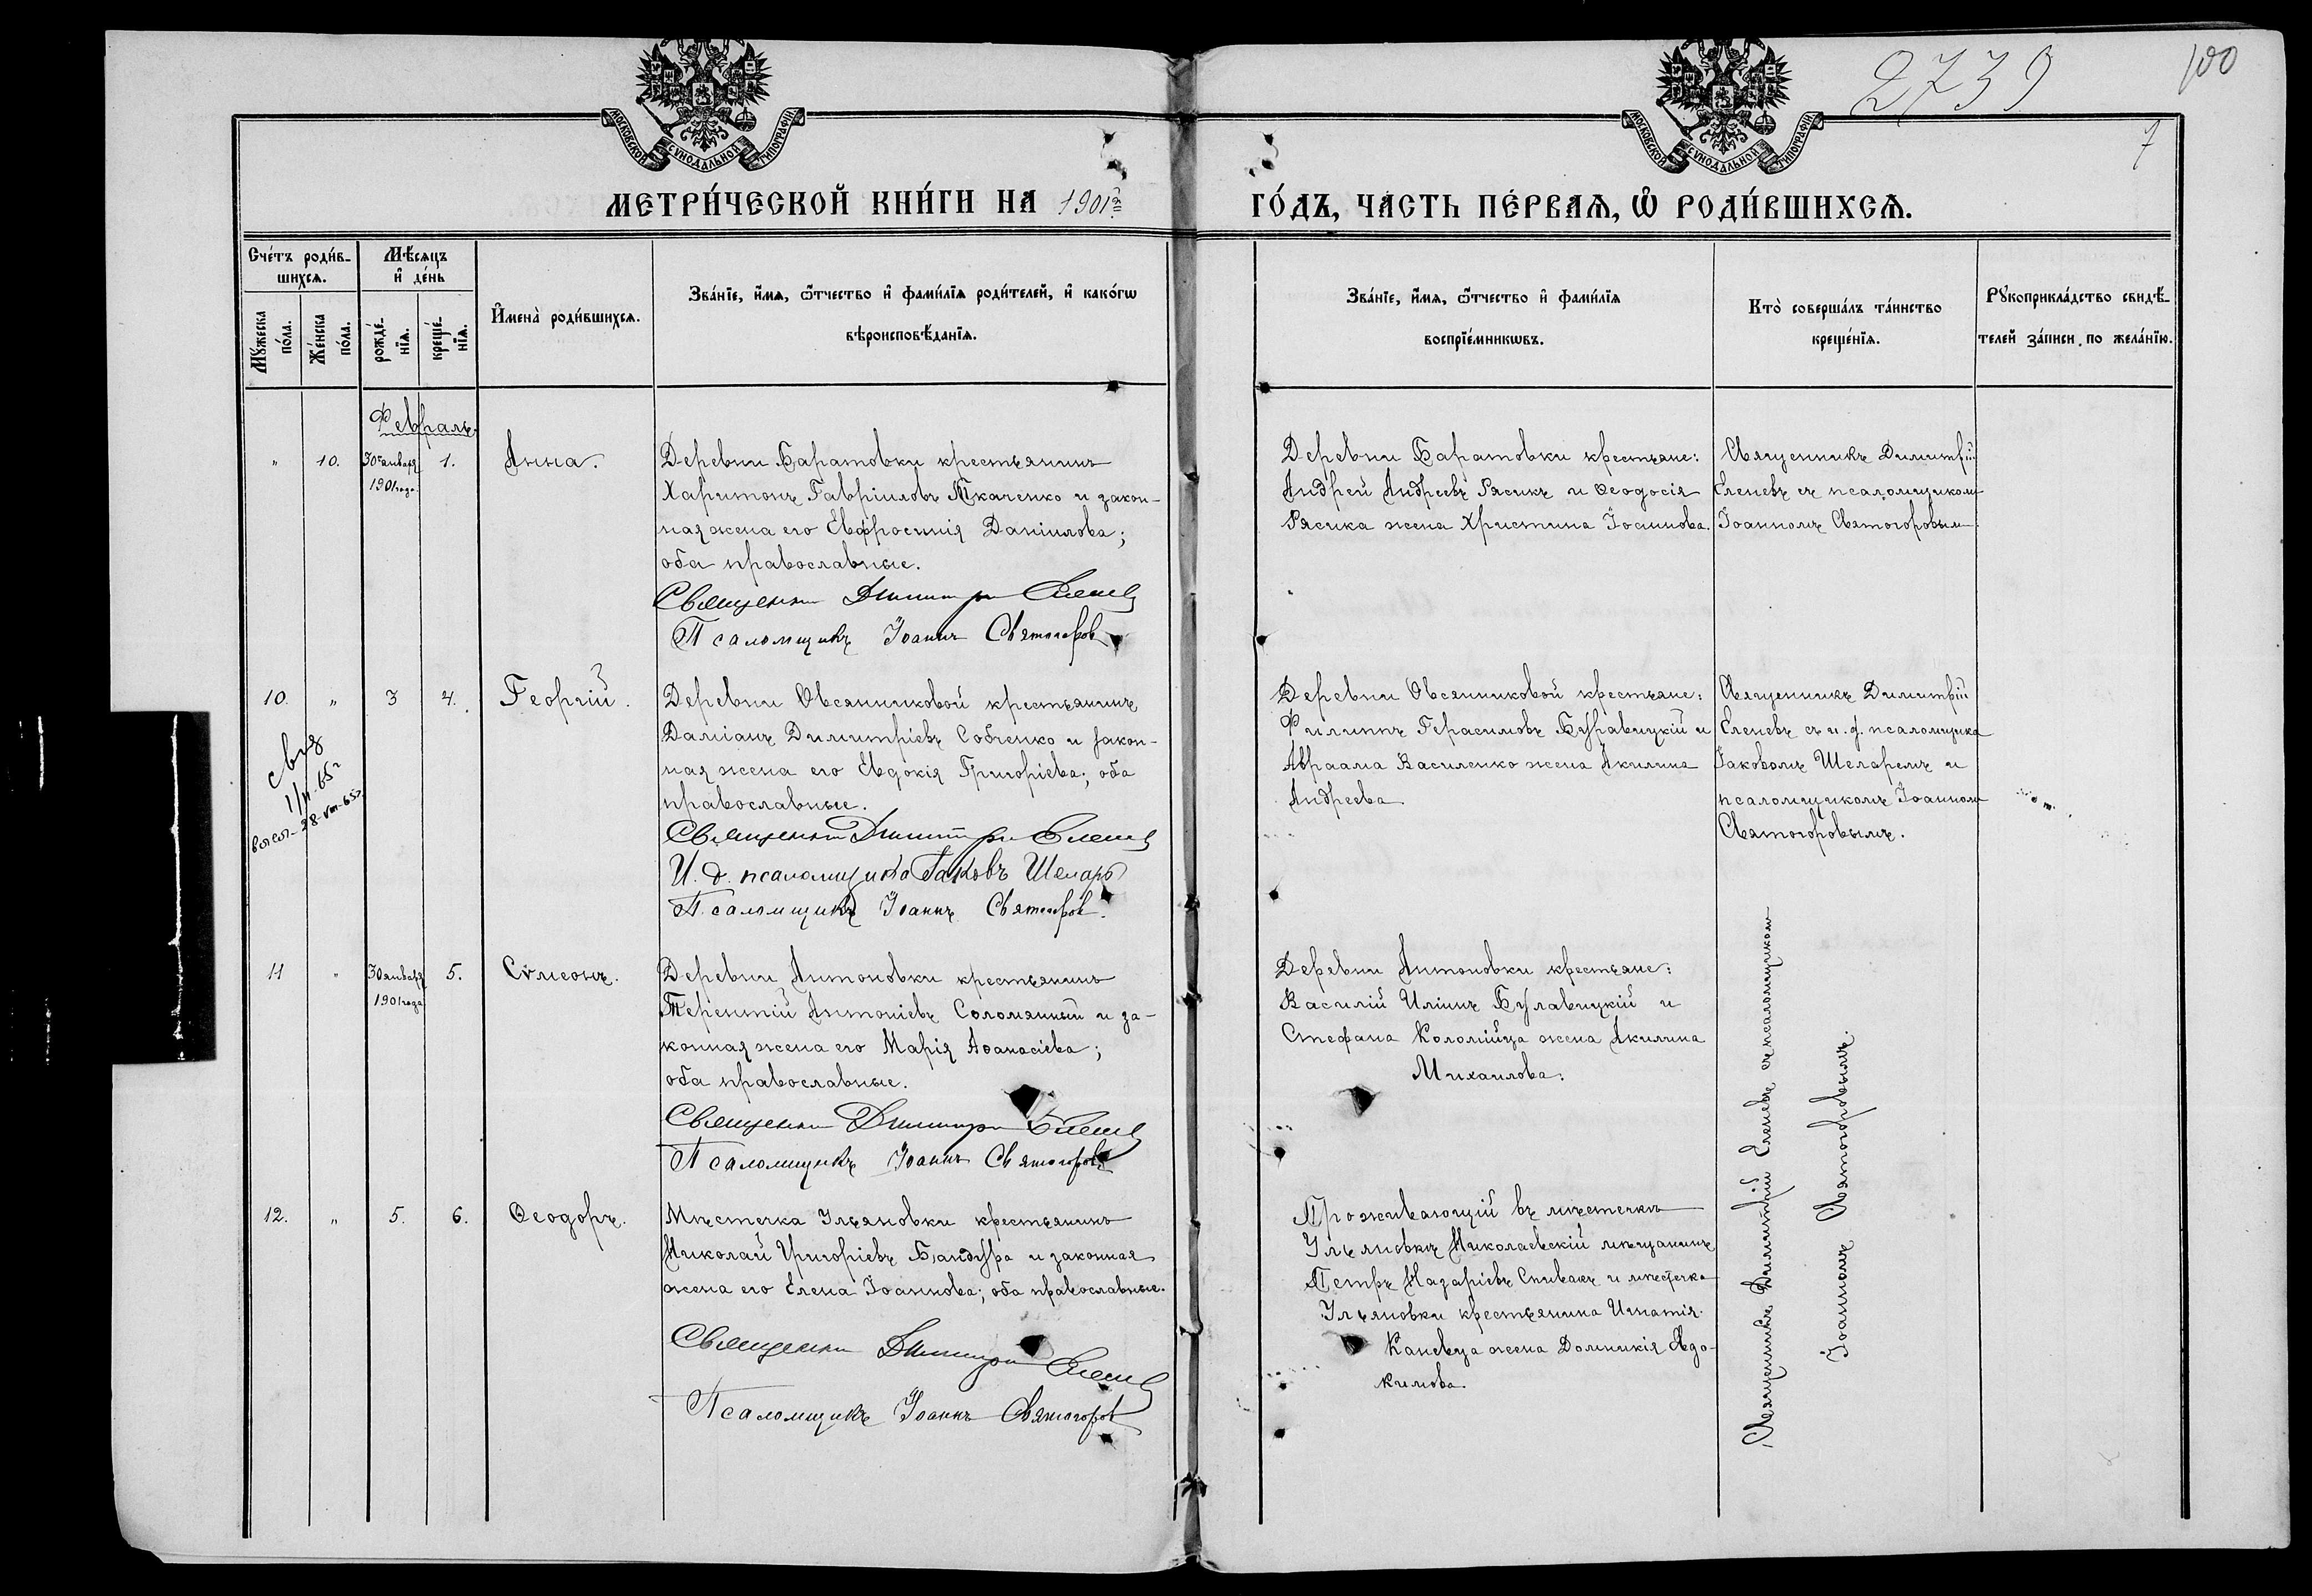 2739
100
7
МОСКОВСКОЙ СѴНОДАЛЬНОЙ ТИПОГРАФІИ
МОСКОВСКОЙ СѴНОДАЛЬНОЙ ТИПОГРАФІИ
МЕТРИ́ЧЕСКОЙ КНИ́ГИ НА 1901й ГО́ДЪ, ЧА́СТЬ ПЕ́РВАѦ, Ѽ РОДИ́ВШИХСѦ.
Сче́тъ роди́в-
шихсѧ.
Мꙋ́жеска по́ла.
Же́нска по́ла.
Мѣ́сѧцъ
и҆ де́нь
рожде́-
нїѧ.
креще́-
нїѧ.
И҆мена̀ роди́вшихсѧ.
Зва́нїе, и҆́мѧ, ѻ҆́тчество и҆ фами́лїѧ роди́телей, и҆ како́гѡ
вѣроисповѣ́данїѧ.
Зва́нїе, и҆́мѧ, ѻ҆́тчество и҆ фами́лїѧ
воспрїе́мникѡвъ.
Кто̀ соверша́лъ та́инство
креще́нїѧ.
Рꙋкоприкла́дство свидѣ́-
телей за́писи по жела́нїю.
Февраль
" 10. 30 января 1901 года 1. Анна.
Деревни Баратовки крестьянинъ
Харитонъ Гавріиловъ Ткаченко и закон-
ная жена его Евфросинія Даніилова;
оба православные.
Священникъ Димитрій Еленевъ
Псаломщикъ Іоаннъ Святогоровъ
Деревни Баратовки крестьяне:
Андрей Андреевъ Рясикъ и Ѳеодосія
Рясика жена Христина Іоаннова.
Священникъ Димитрій
Еленевъ съ псаломщикомъ
Іоанномъ Святогоровымъ
10. " 3 4. Георгій.
1/II-65г
28-VIII-65г.
Деревни Овсянниковой крестьянинъ
Даміанъ Димитріевъ Собченко и закон-
ная жена его Евдокія Григоріева; оба
православные.
Священникъ Димитрій Еленевъ
И. д. псаломщика Іаковъ Шеларь
Псаломщикъ Іоаннъ Святогоровъ.
Деревни Овсянниковой крестьяне:
Филиппъ Герасимовъ Буравицкій и
Авраама Василенко жена Акилина
Андреева
Священникъ Димитрій
Еленевъ съ и. д. псаломщика
Іаковомъ Шеларемъ и
псаломщикомъ Іоанномъ
Святогоровымъ.
11 " 30 января 1901 года 5. Сѵмеонъ.
Деревни Антоновки крестьянинъ
Терентій Антоніевъ Соломянный и за-
конная жена его Марія Аѳанасіева;
оба православные.
Священникъ Димитрій Еленевъ
Псаломщикъ Іоаннъ Святогоровъ
Деревни Антоновки крестьяне:
Василій Иліинъ Булавицкій и
Стефана Коломійца жена Акилина
Михаилова.
Священникъ Димитрій Еленевъ съ псаломщикомъ
Іоанномъ Святогоровымъ.
12. " 5. 6. Ѳеодоръ.
Мѣстечка Ульяновки крестьянинъ
Николай Григоріевъ Бандура и законная
жена его Елена Іоаннова; оба православные.
Священникъ Димитрій Еленевъ
Псаломщикъ Іоаннъ Святогоровъ
Проживающій въ мѣстечкѣ
Ульяновкѣ Николаевскій мѣщанинъ
Петръ Назаріевъ Спивакъ и мѣстечка
Ульяновки крестьянина Игнатія
Каневца жена Домникія Авдо-
кимова.